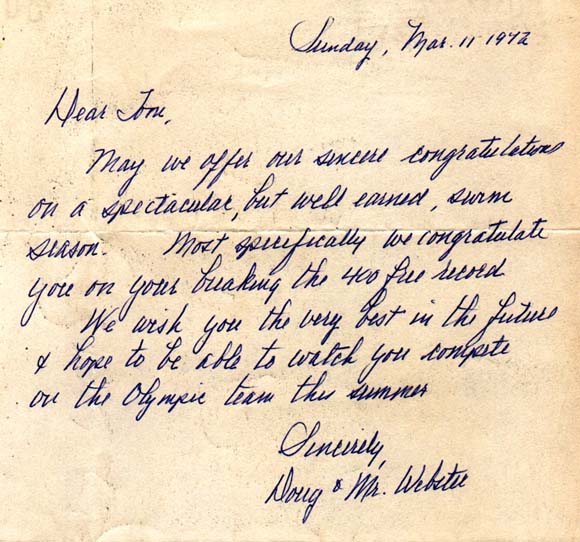 Sunday, Mar. 11 1972
Dear Tom,
May we offer our sincere congratulations
on a spectacular, but well earned, swim
season. Most specifically we congratulate
you on your breaking the 400 free record
We wish you the very best in the future
& hope to be able to watch you compete
on the Olympic team this summer
Sincerely,
Doug & Mr. Webster